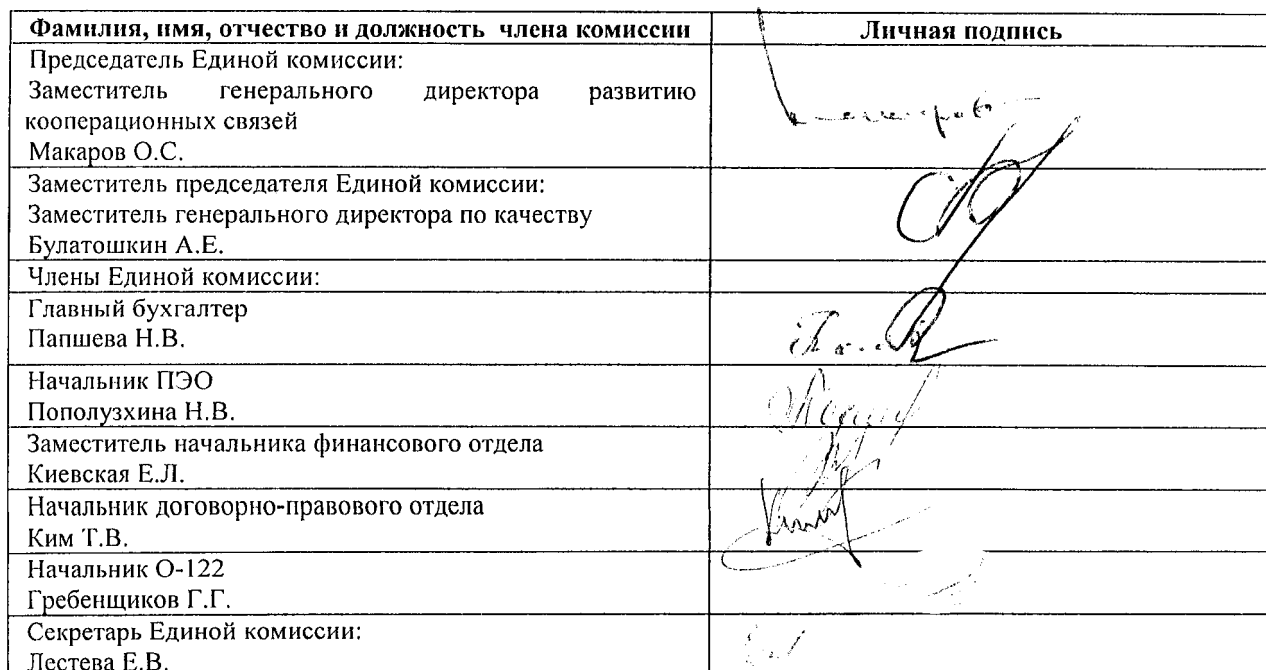 Фамилия, имя, отчество и должность члена комиссии
Личная подпись
Председатель Единой комиссии:
Заместитель генерального директора развитию
кооперационных связей
Макаров О.С.
Заместитель председателя Единой комиссии:
Заместитель генерального директора по качеству
Булатошкин А.Е.
Члены Единой комиссии:
Главный бухгалтер
Папшева Н.В.
Начальник ПЭО
Пополузхина Н.В.
Заместитель начальника финансового отдела
Киевская Е.Л.
Начальник договорно-правового отдела
Ким Т.В.
Начальник О-122
Гребенщиков Г.Г.
Секретарь Единой комиссии:
Лестева Е.В.